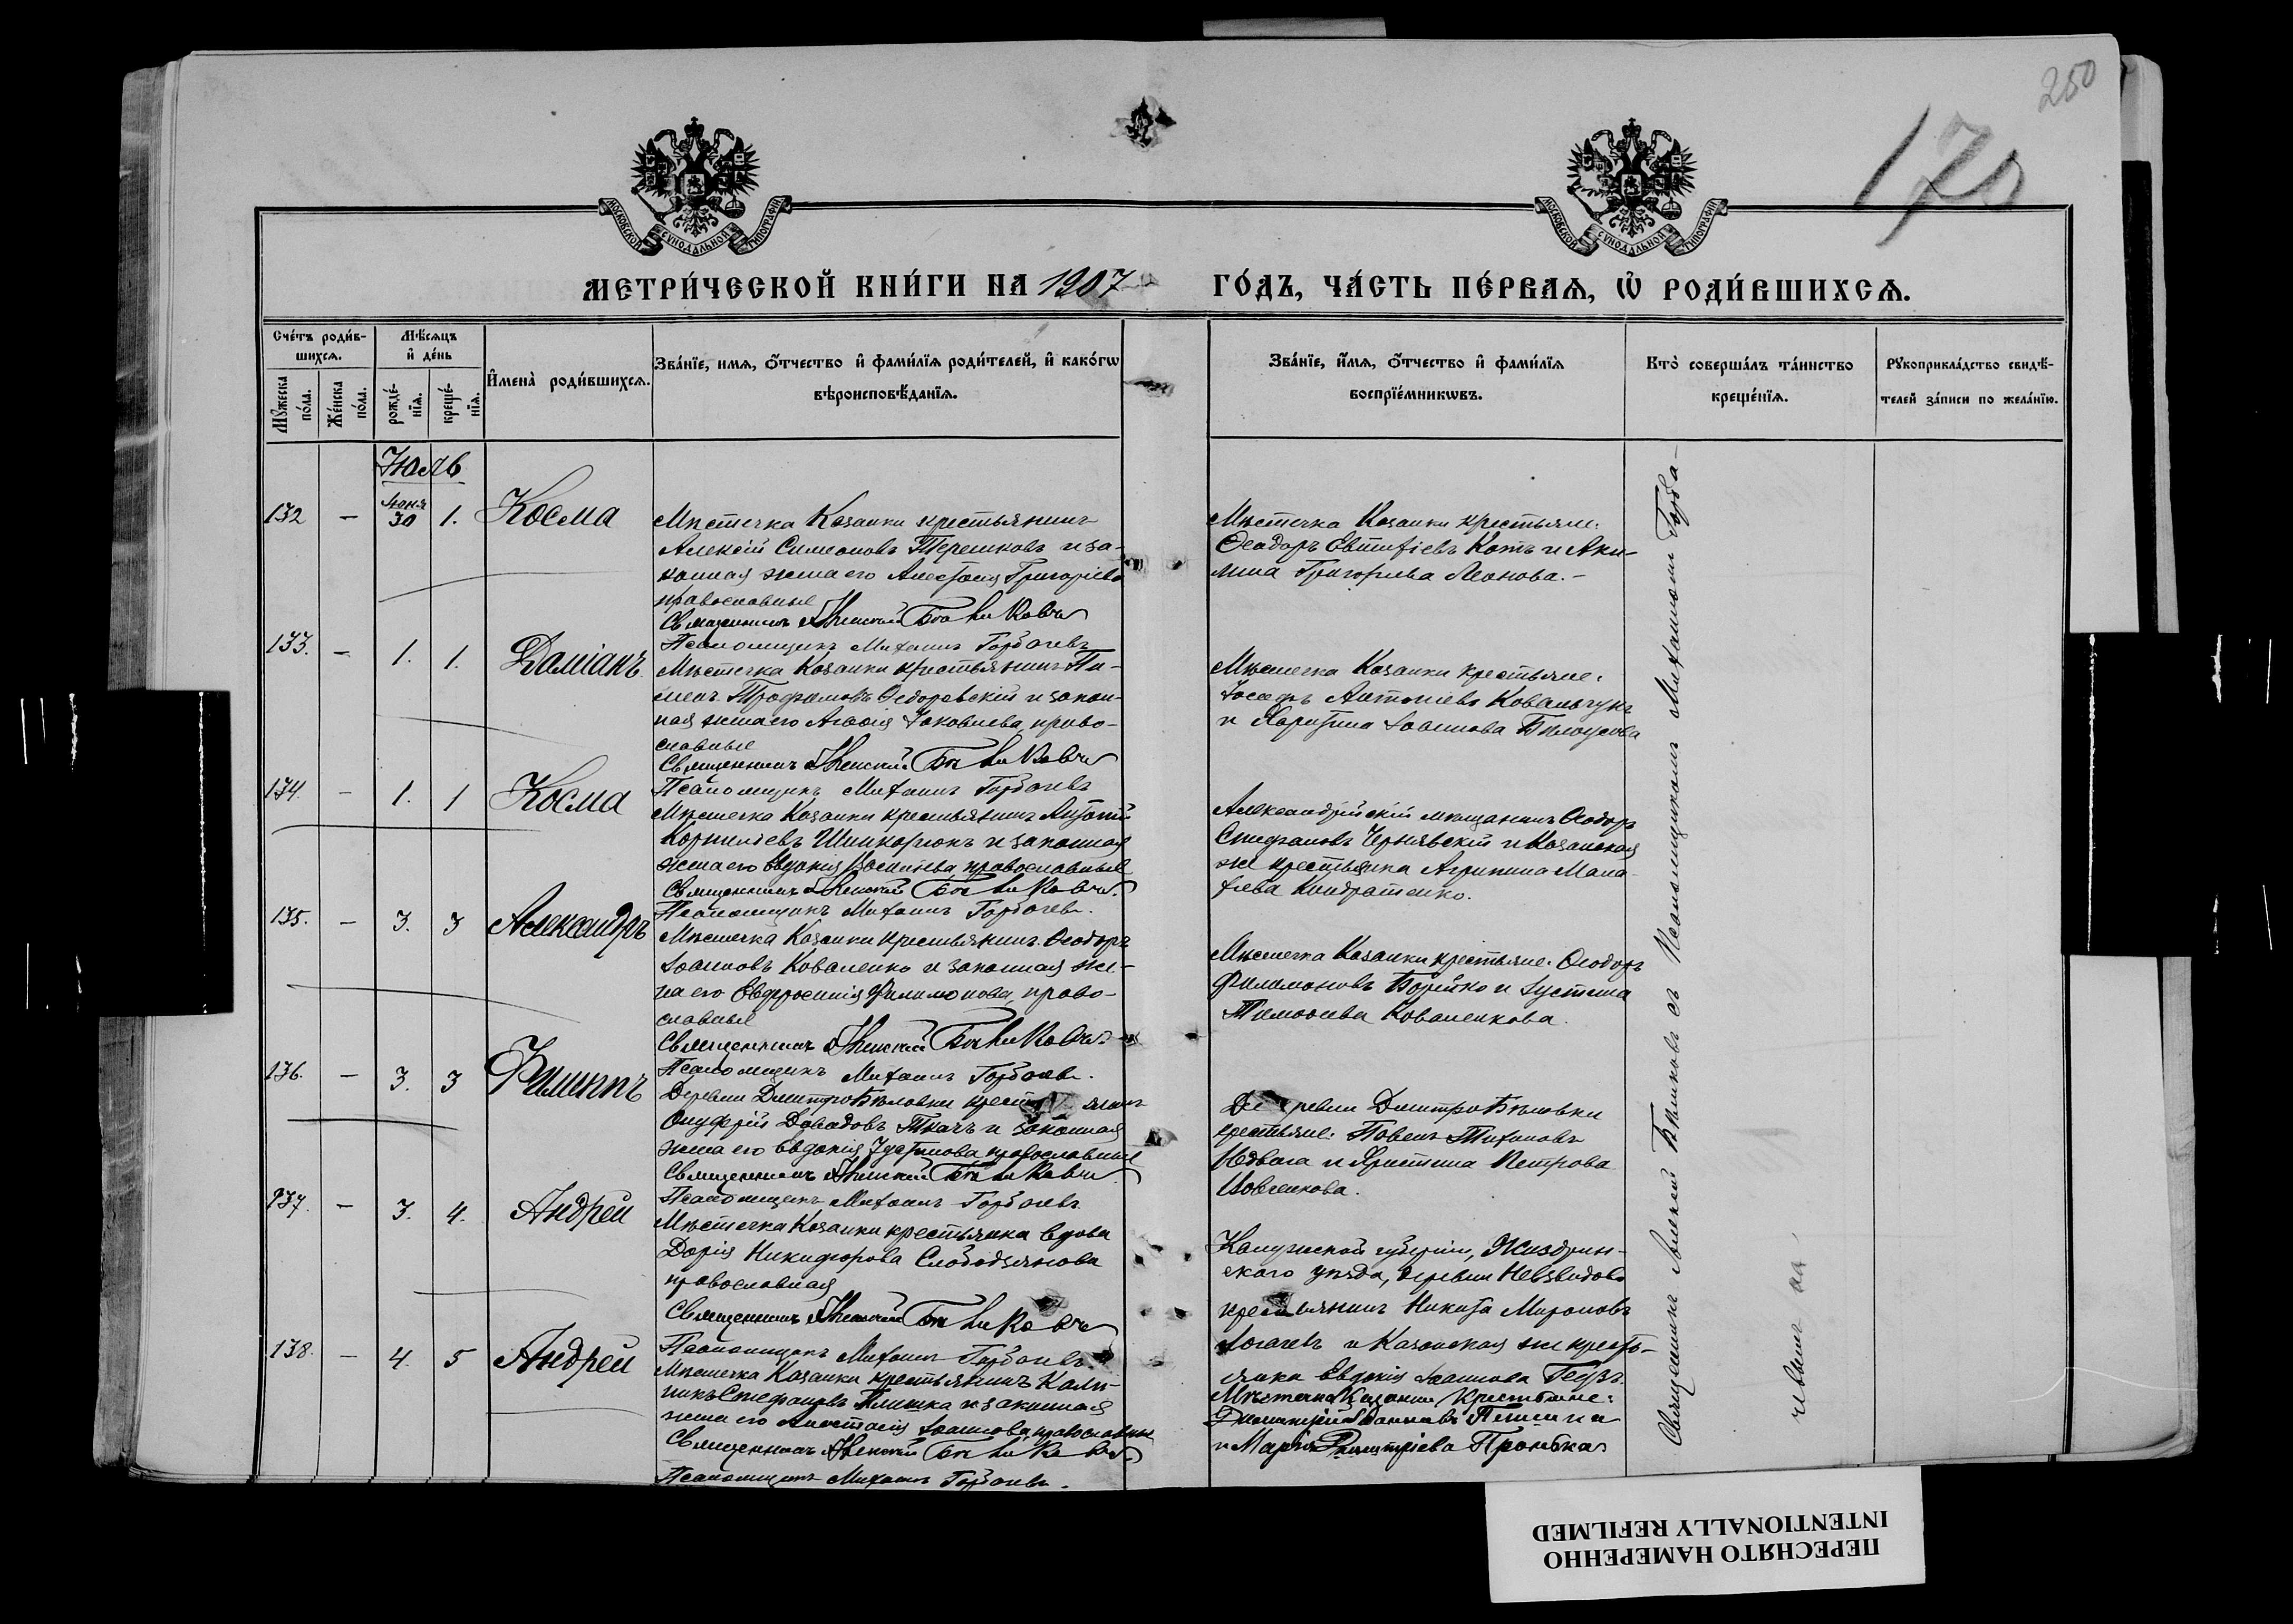 250
170
МОСКОВСКОЙ СѴНОДАЛЬНОЙ ТИПОГРАФІИ
МОСКОВСКОЙ СѴНОДАЛЬНОЙ ТИПОГРАФІИ
МЕТРИ́ЧЕСКОЙ КНИ́ГИ НА 1907
ГО́ДЪ, ЧА́СТЬ ПЕ́РВАѦ, Ѡ҆ РОДИ́ВШИХСѦ.
Сче́тъ роди́в-
шихсѧ.
Мꙋ́жеска
по́ла.
Же́нска
по́ла.
Мѣ́сѧцъ
и҆ де́нь
рожде́-
нїѧ.
креще́-
нїѧ.
И҆мена̀ роди́вшихсѧ.
Зва́нїе, имѧ, ѻ҆́тчество и҆ фами́лїѧ роди́телей, и҆ како́гѡ
вѣроисповѣ́данїѧ.
Зва́нїе, и҆́мѧ, ѻ҆́тчество и҆ фами́лїѧ
воспрїе́мникѡвъ.
Кто̀ соверша́лъ та́инство
креще́нїѧ.
Рꙋкоприкла́дство свидѣ́-
телей за́писи по жела́нїю.
Іюль
132 — Іюня 30 1. Косма
Мѣстечка Казанки крестьянинъ
Алексій Симеоновъ Терешковъ и за-
конная жена его Анастасія Григоріева
православные
Священникъ Алексій Бѣликовъ
Псаломщикъ Михаилъ Горбачевъ
Мѣстечка Казанки крестьяне:
Ѳеодоръ Евтихіевъ Котъ и Аки-
лина Григорьева Леонова.-
133. — 1. 1. Даміанъ
Мѣстечка Казанки крестьянинъ Пи-
менъ Трофимовъ Ѳедоровскій и закон-
ная жена его Агафія Іаковлева, право-
славные
Священникъ Алексій Бѣликовъ
Псаломщикъ Михаилъ Горбачевъ
Мѣстечка Казанки крестьяне:
Іосифъ Антоніевъ Ковальчукъ
и Харитина Іоаннова Бѣлоусова
134. — 1. 1 Косма
Мѣстечка Казанки крестьянинъ Антоній
Корниліевъ Шинкарюкъ и законная
жена его Евдокія Васильева, православные
Священникъ Алексій Бѣликовъ
Псаломщикъ Михаилъ Горбачевъ.
Александрійскій мѣщанинъ Ѳеодоръ
Стефановъ Чернявскій и Казанская
же крестьянка Агрипина Мала-
хіева Кондратенко.
135. — 3. 3 Александръ
Мѣстечка Казанки крестьянинъ Ѳеодоръ
Іоанновъ Коваленко и законная же-
на его Евфросинія Филимонова, право-
славные
Священникъ Алексій Бѣликовъ
Псаломщикъ Михаилъ Горбачевъ.
Мѣстечка Казанки крестьяне: Ѳеодоръ
Филимоновъ Борейко и Іустина
Тимоѳеева Коваленкова.
136. — 3. 3 Филиппъ
Деревни Дмитро Бѣловки крестьянинъ
Онуфрій Давидовъ Ткачъ и законная
жена его Евдокія Іустинова православные
Священникъ Алексій Бѣликовъ
Псаломщикъ Михаилъ Горбачевъ
Деревни Дмитро Бѣловки
крестьяне: Павелъ Тихоновъ
и Христина Петрова
137. — 3. 4. Андрей
Мѣстечка Казанки крестьянка вдова
Дарія Никифорова Слободянова
православная
Священникъ Алексій Бѣликовъ
Псаломщикъ Михаилъ Горбачевъ
Калужской губерніи, Жиздрин-
скаго уѣзда, деревни
крестьянинъ Никита Мироновъ
и Казанская же кресть-
янка Евдокія Іоаннова
138. — 4. 5 Андрей
Мѣстечка Казанки крестьянинъ Кали-
никъ Стефановъ и законная
жена его Анастасія Іоаннова православные
Священникъ Алексій Бѣликовъ
Псаломщикъ Михаилъ Горбачевъ.
Мѣстечка Казанки крестьяне:
Димитрій Іоанновъ
и Марія Димитріева
Священникъ Алексій Бѣликовъ съ Псаломщикомъ Михаиломъ Горба-
чевымъ
ПЕРЕСНЯТО НАМЕРЕННО
INTENTIONALLY REFILMED